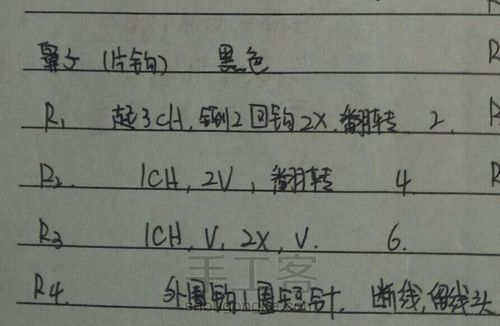 鼻子 (片钩) 黑色
R1 起3CH, 倒2回钩2X, 翻转 2.
R2. 1CH, 2V, 翻转 4
R3 1CH, V, 2X, V. 6.
R4. 外圈钩1圈短针. 断线, 留线头
手工客